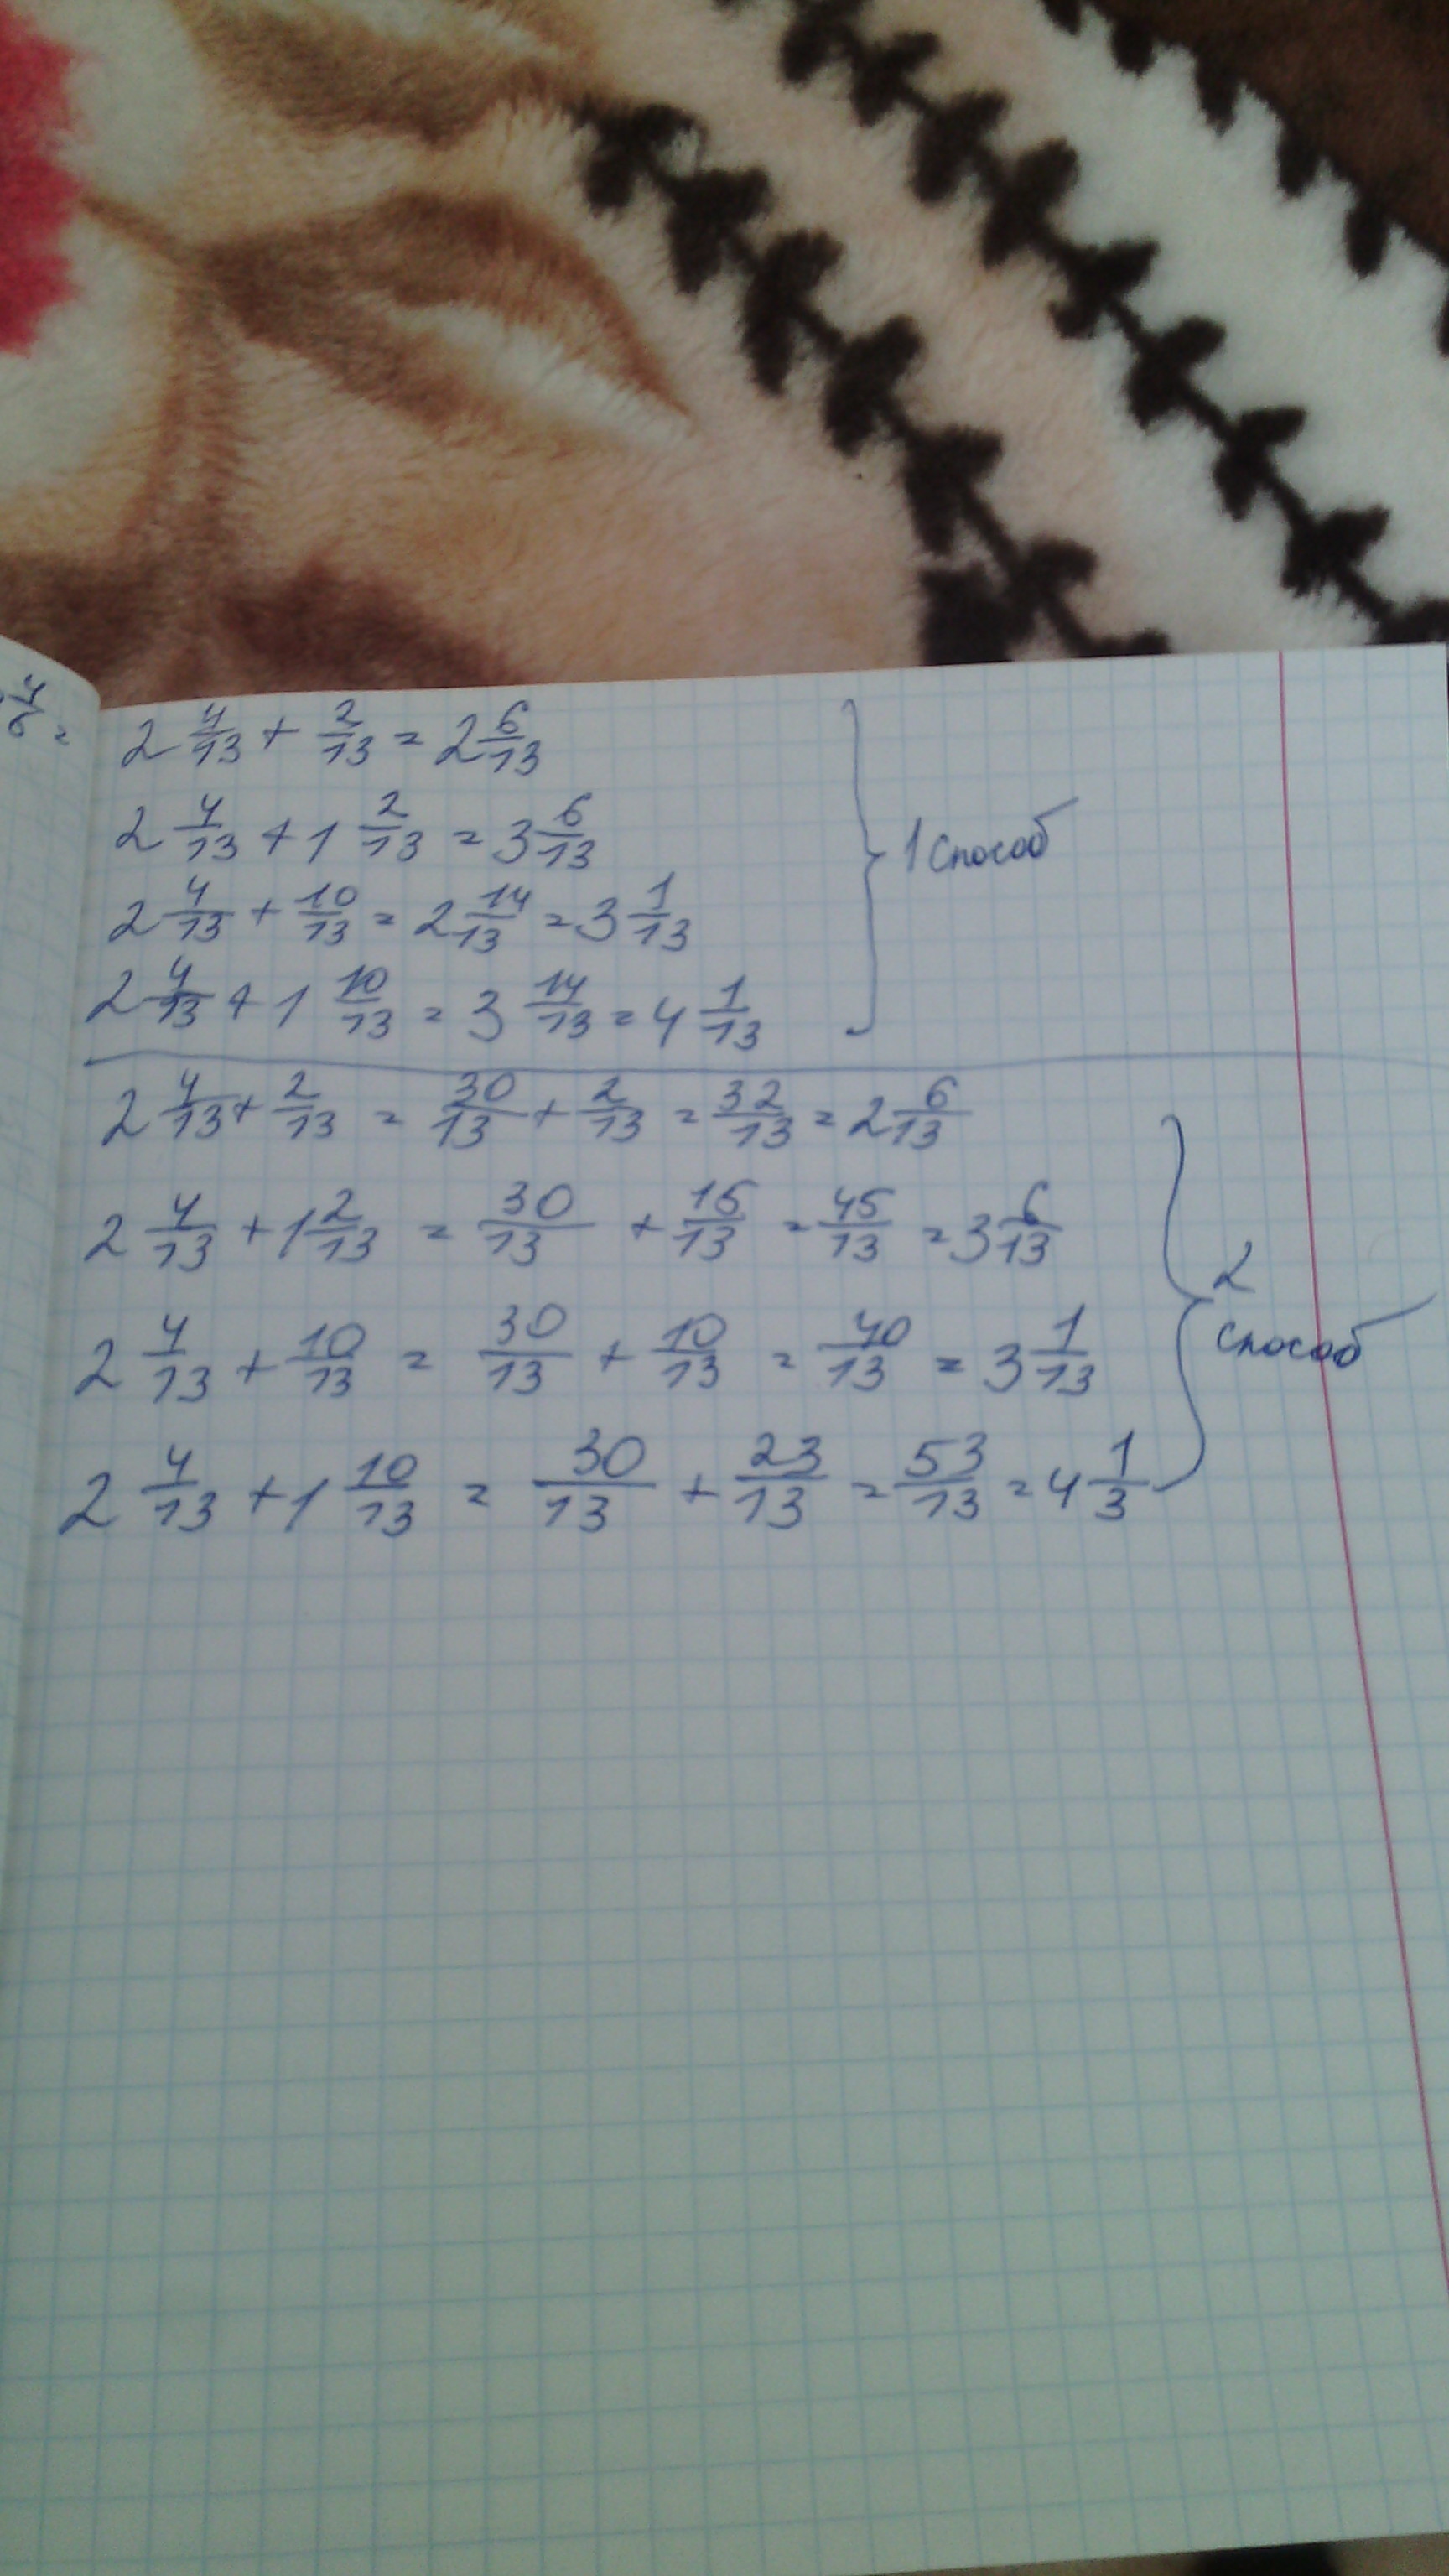 4/6 =
2 4/13 + 2/13 = 2 6/13
2 4/13 + 1 2/13 = 3 6/13
2 4/13 + 10/13 = 2 14/13 = 3 1/13
2 4/13 + 1 10/13 = 3 14/13 = 4 1/13
1 способ
2 4/13 + 2/13 = 30/13 + 2/13 = 32/13 = 2 6/13
2 4/13 + 1 2/13 = 30/13 + 15/13 = 45/13 = 3 6/13
2 4/13 + 10/13 = 30/13 + 10/13 = 40/13 = 3 1/13
2 4/13 + 1 10/13 = 30/13 + 23/13 = 53/13 = 4 1/3
2
способ